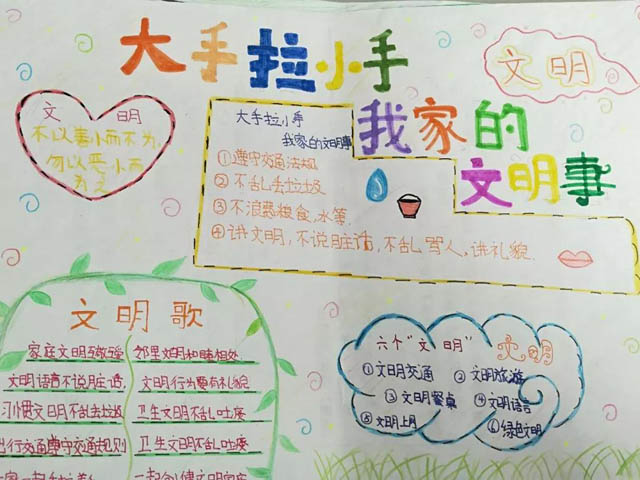 大手拉小手
我家的
文明事
文明
文明
不以善小而不为,
勿以恶小而
为之
大手拉小手
我家的文明事
①遵守交通法规
②不乱丢垃圾
③不浪费粮食,水等.
④讲文明,不说脏话,不乱骂人,讲礼貌.
文明歌
家庭文明 邻里文明和睦相处
文明语言不说脏话, 文明行为要有礼貌
习惯文明不乱丢垃圾 卫生文明不乱吐痰
出行交通遵守交通规则 卫生文明不乱吐痰
六个"文明" 文明
①文明交通 ②文明旅游
③文明餐桌 ④文明语言
⑤文明上网 ⑥绿色文明